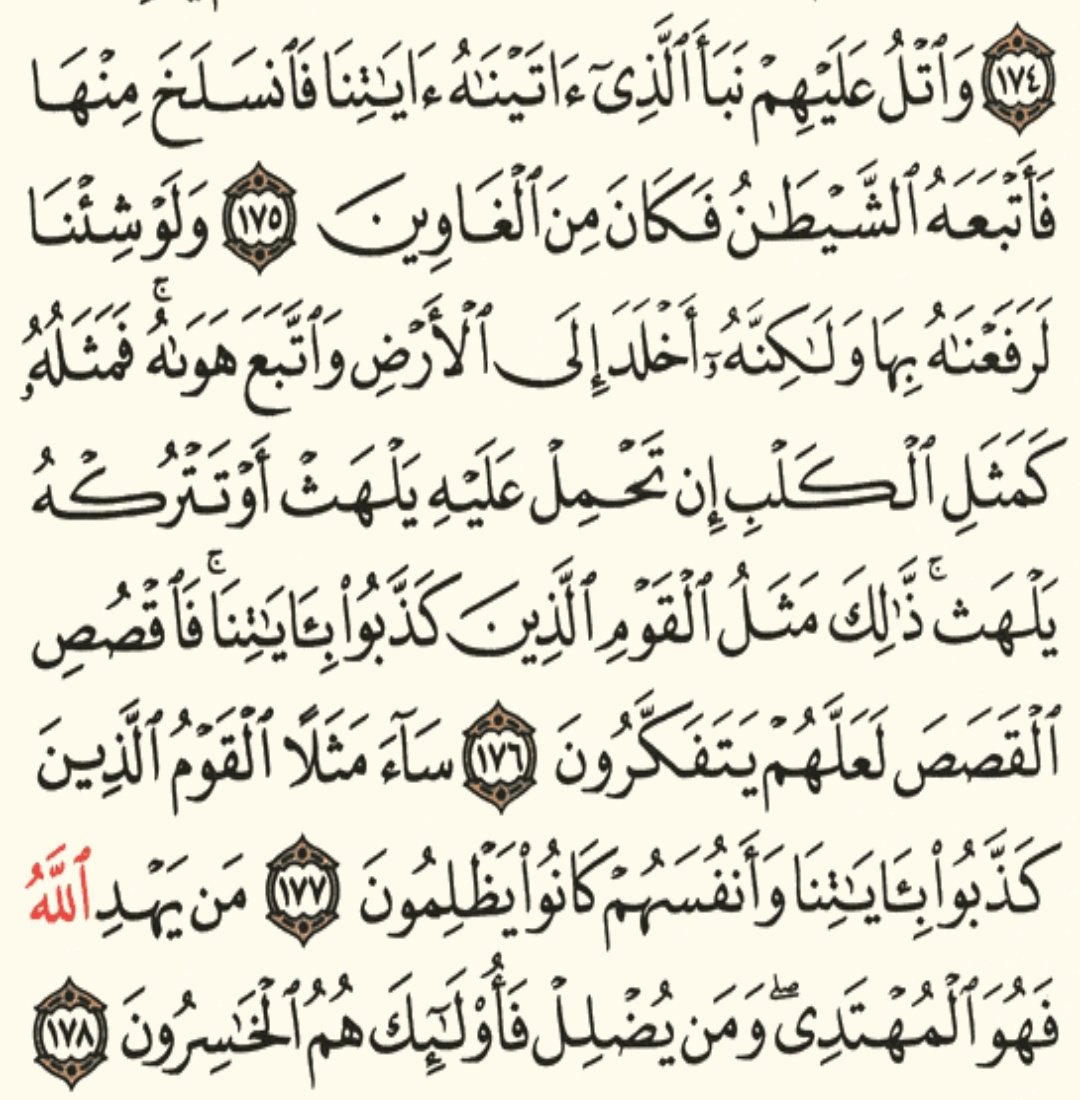 ١٧٤ وَٱتۡلُ عَلَيۡهِمۡ نَبَأَ ٱلَّذِيٓ ءَاتَيۡنَٰهُ ءَايَٰتِنَا فَٱنسَلَخَ مِنۡهَا
فَأَتۡبَعَهُ ٱلشَّيۡطَٰنُ فَكَانَ مِنَ ٱلۡغَاوِينَ ١٧٥ وَلَوۡ شِئۡنَا
لَرَفَعۡنَٰهُ بِهَا وَلَٰكِنَّهُۥٓ أَخۡلَدَ إِلَى ٱلۡأَرۡضِ وَٱتَّبَعَ هَوَىٰهُۚ فَمَثَلُهُۥ
كَمَثَلِ ٱلۡكَلۡبِ إِن تَحۡمِلۡ عَلَيۡهِ يَلۡهَثۡ أَوۡ تَتۡرُكۡهُ
يَلۡهَثۚ ذَّٰلِكَ مَثَلُ ٱلۡقَوۡمِ ٱلَّذِينَ كَذَّبُواْ بِـَٔايَٰتِنَاۚ فَٱقۡصُصِ
ٱلۡقَصَصَ لَعَلَّهُمۡ يَتَفَكَّرُونَ ١٧٦ سَآءَ مَثَلًا ٱلۡقَوۡمُ ٱلَّذِينَ
كَذَّبُواْ بِـَٔايَٰتِنَا وَأَنفُسَهُمۡ كَانُواْ يَظۡلِمُونَ ١٧٧ مَن يَهۡدِ ٱللَّهُ
فَهُوَ ٱلۡمُهۡتَدِيۖ وَمَن يُضۡلِلۡ فَأُوْلَٰٓئِكَ هُمُ ٱلۡخَٰسِرُونَ ١٧٨